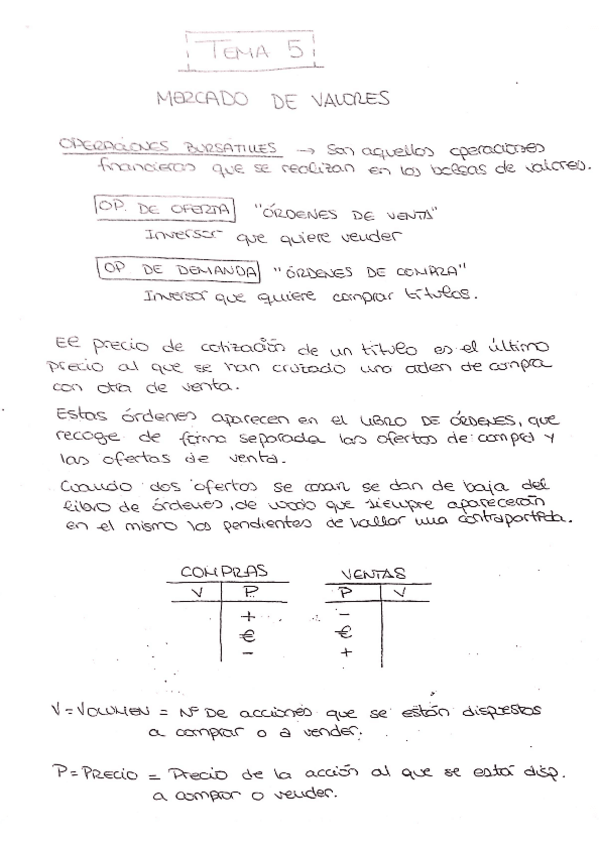 TEMA 5
MERCADO DE VALORES
OPERACIONES BURSATILES → Son aquellas operaciones
financieras que se realizan en las bolsas de valores.
OP. DE OFERTA "ÓRDENES DE VENTA"
Inversor que quiere vender
OP DE DEMANDA "ÓRDENES DE COMPRA"
Inversor que quiere comprar títulos.
El precio de cotización de un título es el último
precio al que se han cruzado una orden de compra
con otra de venta.
Estas órdenes aparecen en el LIBRO DE ÓRDENES, que
recoge de forma separada las ofertas de compra y
las ofertas de venta.
Cuando dos ofertas se casan se dan de baja del
libro de órdenes, de modo que siempre aparecerán
en el mismo las pendientes de hallar una contrapartida.
COMPRAS VENTAS
V P P V
+ -
€ €
- +
V = VOLUMEN = Nº DE acciones que se están dispuestos
a comprar o a vender.
P = PRECIO = Precio de la acción al que se está disp.
a comprar o vender.